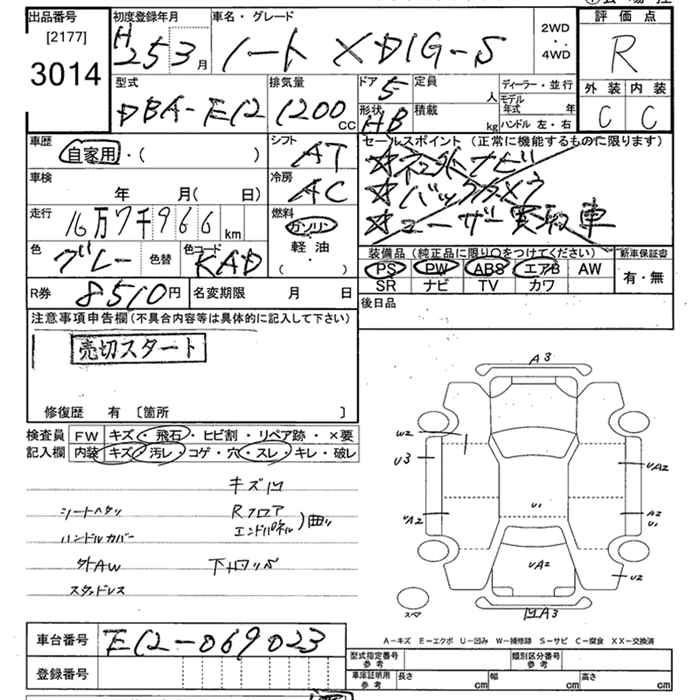 出品番号 初度登録年月 車名・グレード 評価点
[2177]
3014
H25 3月 ノート X DIG-S
2WD
・・
4WD
R
型式 排気量 ドア 5 定員 人 ディーラー・並行
外装 内装
DBA-E12 1200 CC 形状 HB 積載 kg モデル年式 年
ハンドル 左・右
C C
車歴 自家用・( ) シフト AT
セールスポイント (正常に機能するものに限ります)
車検 年 月( 日) 冷房 AC
☆バックカメラ
☆ユーザー買取車
走行 16万7千966 km 燃料 ガソリン
軽油
( ・ )
色 グレー 色替 色コード KAD
装備品 (純正品に限り○をつけてください) 新車保証書
PS PW ABS エアB AW 有・無
SR ナビ TV カワ
R券 8510円 名変期限 月 日
後日品
注意事項申告欄 (不具合内容等は具体的に記入して下さい)
売切スタート
修復歴 有 〔箇所 〕
検査員 FW キズ・飛石・ヒビ割・リペア跡・×要
記入欄 内装 キズ・汚レ・コゲ・穴・スレ・キレ・破レ
Rフロア
エンドパネル )曲り
シートヘタリ
ハンドルカバー
外AW
スタッドレス
A3
W2
U3
UA2
U1
UA2
A2
U1
UA2
U2
スペ
A3
A-キズ E-エクボ U-凹み W-補修跡 S-サビ C-腐食 XX-交換済
車台番号 E12-069023
登録番号
型式指定番号 参考 類別区分番号 参考
車庫証明用 参考 長さ cm 幅 cm 高さ cm